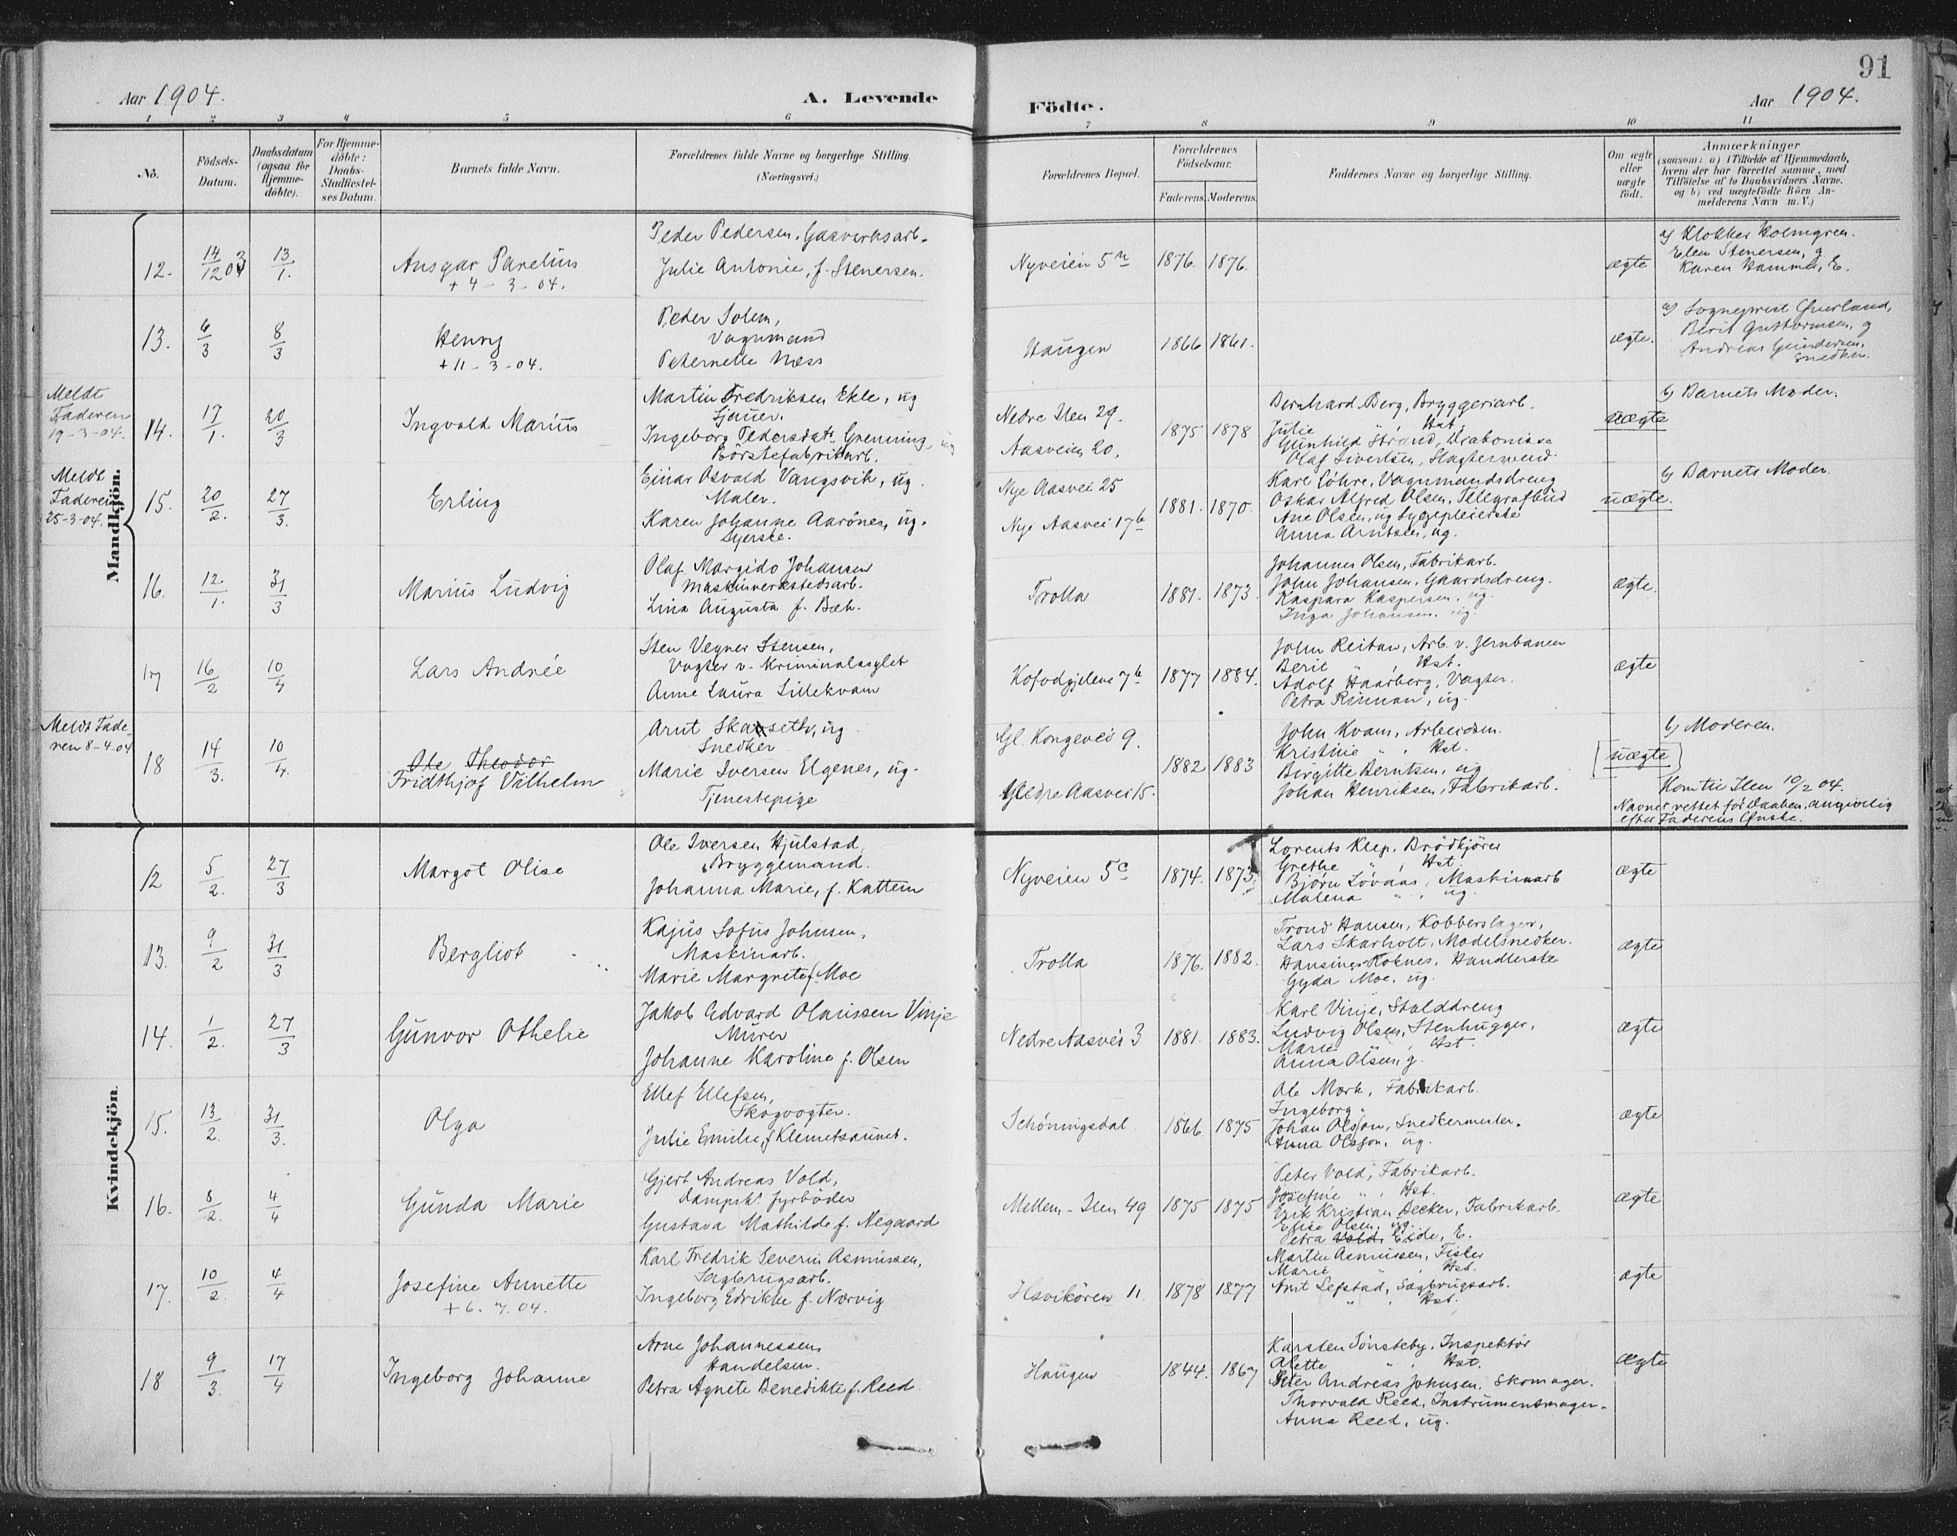 91
Aar 1904. A. Levende Födte. Aar 1904.
1 2 3 4 5 6 7 8 9 10 11
No.
Födsels-Datum.
Daabsdatum (ogsaa for Hjemmedöbte).
For Hjemmedöbte: Daabs-Stadfæstelses Datum.
Barnets fulde Navn.
Forældrenes fulde Navne og borgerlige Stilling.
(Næringsvei.)
Forældrenes Bopæl.
Forældrenes Födselsaar.
Faderens. Moderens.
Faddernes Navne og borgerlige Stilling.
Om ægte eller uægte født.
Anmærkninger
(saasom: a) i Tilfælde af Hjemmedaab,
hvem der har forrettet samme, med
Tilføielse af to Daabsvidners Navne.
og b) ved uægtefödte Börn Anmelderens Navn m. V.)
Mandkjön.
12. 14/12 03 13/1.
Ansgar Parelius
+ 4-3-04.
Peder Pedersen, Gasverksarb.
Julie Antonie, f. Stenersen.
Nyveien 5
1876. 1876.
ægte
a) Klokker Holmgren.
Elen Stenersen, g
Karen Hammer, E.
13. 6/3 8/3
Henry
+ 11-3-04.
Peder Solem,
Vognmand
Peternelle Næss
Haugen
1866 1861.
ægte.
a) Sogneprest Øverland,
Berit Guttormsen, g
Andreas Gundersen,
Snedker.
Meldt
Faderen
19-3-04.
14. 17/1. 20/3
Ingvald Marius
Martin Fredriksen Ekle, ug
Ingeborg Pedersdatt. Grenning, ug
Børstefabrikarb.
Nedre Ilen 29.
Aasveien 20.
1875 1878
Bernhard Berg, Bryggeriarb.
Julie " , Hst.
Gunhild Strand, Diakonisse
Olaf Sivertsen, Slagtersvend.
uægte
b) Barnets Moder.
Meldt
Faderen
25-3-04.
15. 20/2. 27/3.
Erling
Einar Osvald Vangsvik, ug.
Maler.
Karen Johanne Aarönes, ug.
Syerske.
Nye Aasvei 25
Nye Aasvei 17b
1881. 1870.
Karl Löhre, Vognmandsdreng
Oskar Alfred Olsen, Telegrafbud
Ane Olsen, ug Sygepleierske
Anna Arntsen, ug.
uægte.
b) Barnets Moder.
16. 12/1. 31/3
Marius Ludvig
Olaf Margido Johansen
Maskinverkstedsarb.
Lina Augusta f. Bæk.
Trolla
1881. 1873.
Johannes Olsen, Fabrikarb.
John Johansen, Gaardsdreng.
Kaspara Kaspersen, ug.
Inga Johansen, ug.
ægte.
17 16/2 10/4
Lars Andrée
Sten Vegner Stensen,
Vogter v. Kriminalasylet
Anne Laura Lillekvam
Kofodgjelene 7b
1877 1884.
John Reitan, Arb. v. Jernbanen
Berit " , Hst.
Adolf Haarberg, Vogter.
Petra Rinnan, ug.
ægte
Meldt Faderen 8-4-04
18 14/3. 10/4.
Ole Theodor
Fridthjof Vilhelm
Arnt Skansett, ug
Snedker
Marie Iversen Elgenes, ug.
Tjenestepige
Gl. Kongevei 9.
Nedre Aasvei 15.
1882 1883
John Kvam, Arbeidsm.
Kristine " , Hst.
Birgitte Berntsen, ug
Johan Henriksen, Fabrikarb.
uægte
b) Moderen.
Kom til Ilen 10/2 04.
Navnet rettet för Daaben, angivelig
efter Faderens Ønske.
Kvindekjön.
12 5/2. 27/3
Margot Olise
Ole Iversen Hjulstad,
Bryggemand.
Johanna Marie, f. Kattem
Nyveien 5c
1874. 1873.
Lorents Klep, Brödkjörer
Grethe " , Hst.
Bjørn Løvaas, Maskinarb
Malena " , ug.
ægte
13. 9/2 31/3
Bergliot
Kajus Sofus Johnsen,
Maskinarb.
Marie Margrete f. Moe
Trolla
1876. 1882.
Trond Hansen, Kobberslager,
Lars Skarholt, Modelsnedker.
Hansine Roknes, Handlerske
Gyda Moe, ug.
ægte
14. 1/2. 27/3
Gunvor Othelie
Jakob Edvard Olaussen Vinje
Murer
Johanne Karoline f. Olsen
Nedre Aasvei 3
1881. 1883.
Karl Vinje, Stalddreng
Ludvig Olsen, Stenhugger,
Marie " , Hst.
Anna Olsen, g.
ægte
15. 13/2. 31/3.
Olga
Ellef Ellefsen,
Skogvogter.
Julie Emilie, f. Klemetsaunet.
Schönningsdal.
1866. 1875
Ole Mork, Fabrikarb.
Ingeborg "
Johan Olsson, Snedkermester.
Anna Olsson, ug.
ægte
16. 8/2. 4/4
Gunda Marie
Gjert Andreas Vold,
Dampsk. fyrbøder
Gustava Mathilde f. Negaard
Mellem-Ilen 49
1875 1875
Peter Vold, Fabrikarb.
Josefine " , Hst.
Erik Kristian Decker, Fabrikarb.
Elise Olsen, ug.
Petra Vold, Eide, E.
ægte
17. 10/2. 4/4
Josefine Annette
+ 6. 7. 04.
Karl Fredrik Severin Asmussen,
Sagbrugsarb.
Ingeborg Edrikke f. Nærvig
Hevikören 11.
1878 1877
Martin Asmussen, Fisker
Marie " , Hst.
Arnt Lefstad, Sagbrugsarb.
" , Hst.
ægte
18 9/3. 17/4
Ingeborg Johanne
Arne Johannessen,
Handelsm.
Petra Agnete Benedikte f. Reed
Haugen
1844. 1867
Karsten Sönsteby, Inspektör
Alette " , Hst.
Peter Andreas Johnsen, Skomager.
Thorvald Reed, Instrumentmager.
Anna Reed, ug.
ægte